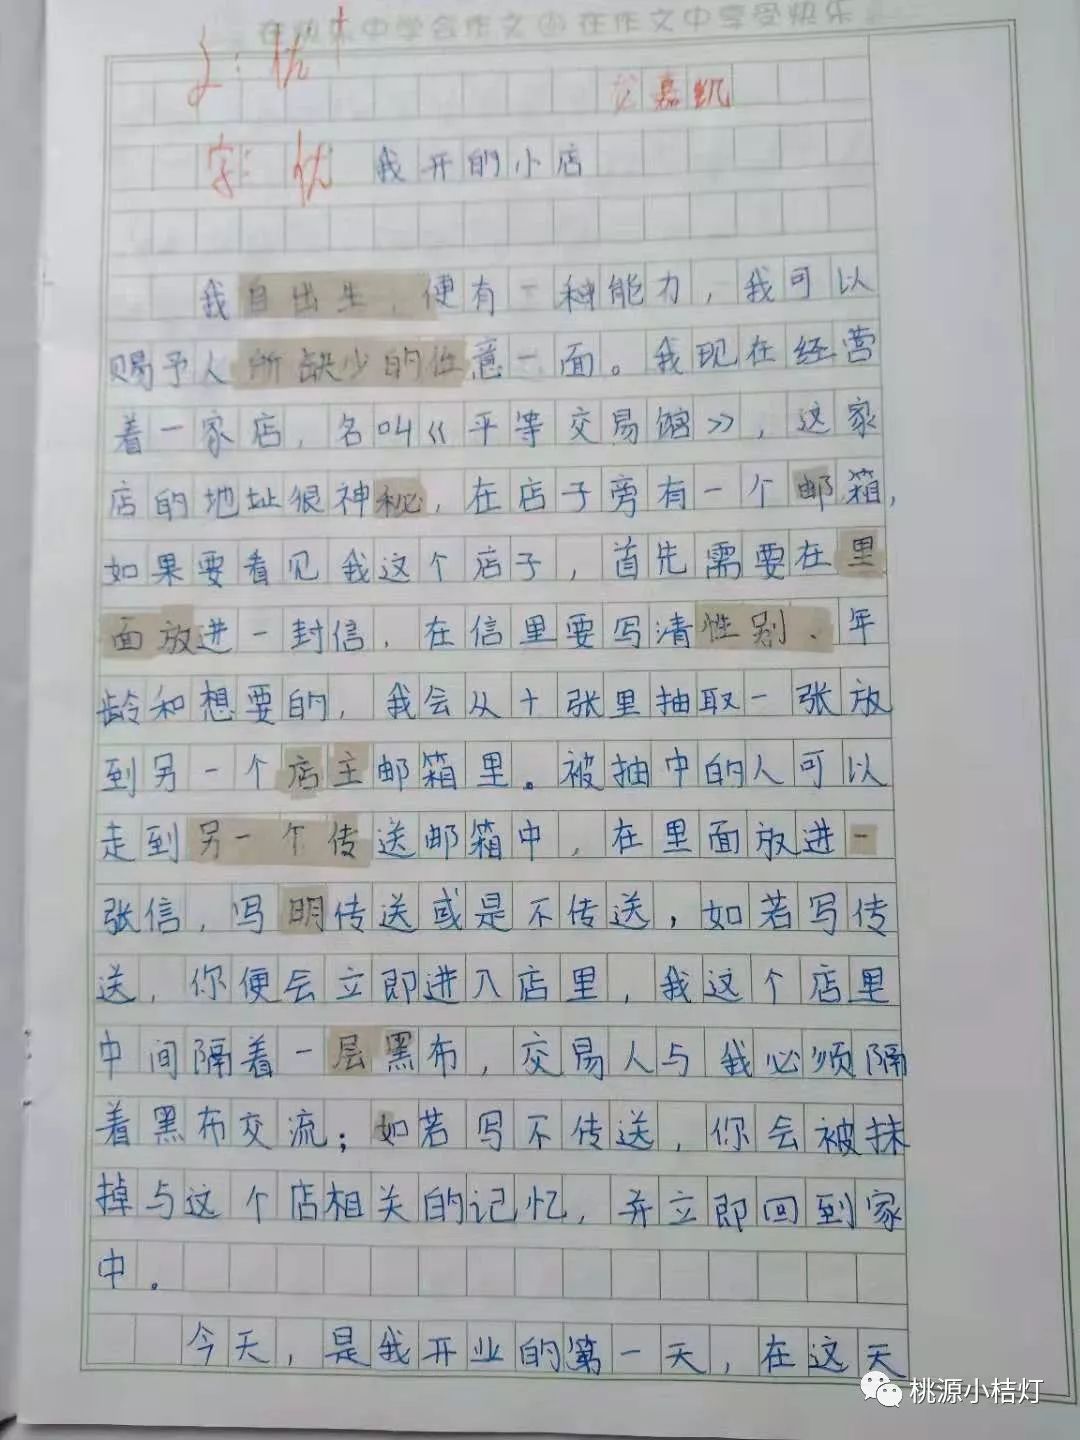 在快乐中学会作文 在作文中享受快乐
文：优+
嘉凯
字：优 我开的小店
我自出生，便有一种能力，我可以
赐予人所缺少的任意一面。我现在经营
着一家店，名叫《平等交易馆》，这家
店的地址很神秘，在店子旁有一个邮箱，
如果要看见我这个店子，首先需要在里
面放进一封信，在信里要写清性别、年
龄和想要的，我会从十张里抽取一张放
到另一个店主邮箱里。被抽中的人可以
走到另一个传送邮箱中，在里面放进一
张信，写明传送或是不传送，如若写传
送，你便会立即进入店里，我这个店里
中间隔着一层黑布，交易人与我必须隔
着黑布交流；如若写不传送，你会被抹
掉与这个店相关的记忆，并立即回到家
中。
今天，是我开业的第一天，在这天
桃源小桔灯